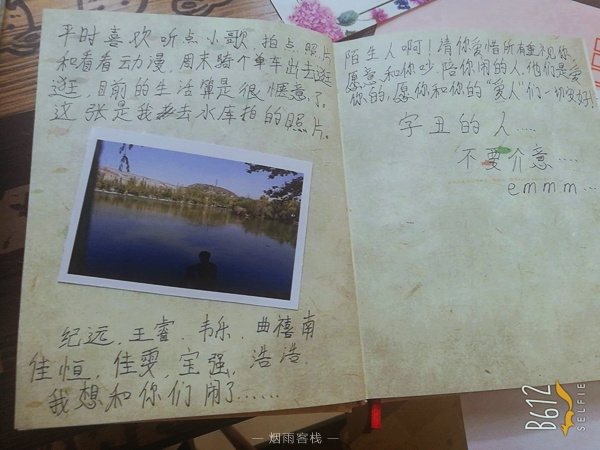 平时喜欢听点小歌,拍点照片
和看看动漫,周末骑个单车出去逛
逛,目前的生活算是很惬意了。
这张是我去水库拍的照片。
纪远,王睿,韦乐,曲禧南
佳恒,佳雯,宝强,浩浩
我想和你们闹了……
陌生人啊!请你爱惜所有重视你
愿意和你吵,陪你闹的人,他们是爱
你的,愿你和你的"爱人"们一切安好!
字丑的人….
不要介意….
emmm…
B612
SELFIE
— 烟雨客栈 —